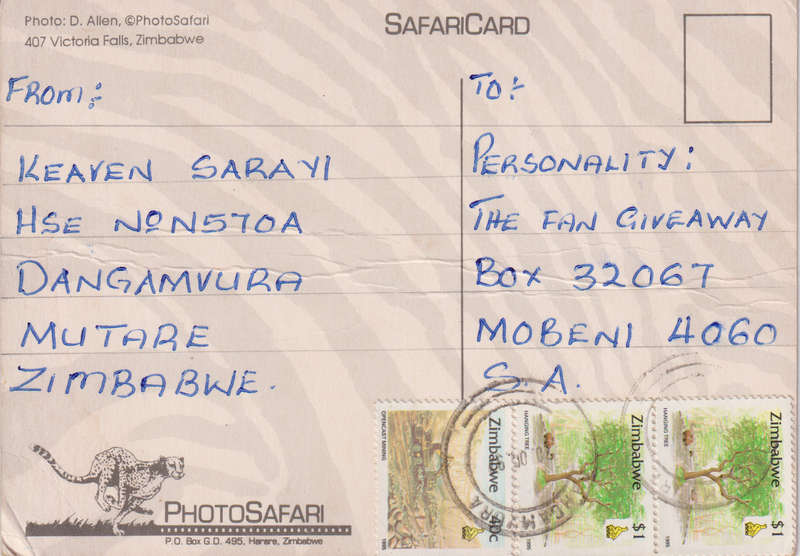 Photo: D. Allen, ©PhotoSafari
407 Victoria Falls, Zimbabwe
SAFARICARD
FROM:
KEAVEN SARAYI
HSE No N570A
DANGAMVURA
MUTARE
ZIMBABWE.
TO:-
PERSONALITY:
THE FAN GIVEAWAY
BOX 32067
MOBENI 4060
S. A.
PHOTOSAFARI
P.O. Box G.D. 495, Harare, Zimbabwe
OPENCAST MINING
Zimbabwe
40c
1995
HANGING TREE
Zimbabwe
$1
1995
HANGING TREE
Zimbabwe
$1
1995